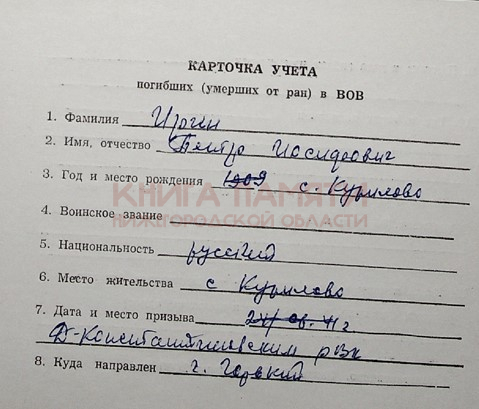 КАРТОЧКА УЧЕТА
погибших (умерших от ран) в ВОВ
1. Фамилия Иргин
2. Имя, отчество Петр Иосифович
3. Год и место рождения 1909 с. Курилово
КНИГА ПАМЯТИ
НИЖЕГОРОДСКОЙ ОБЛАСТИ
4. Воинское звание
5. Национальность русский
6. Место жительства с Курилово
7. Дата и место призыва 41 г.
Д-Константиновским рвк
8. Куда направлен г. Горький